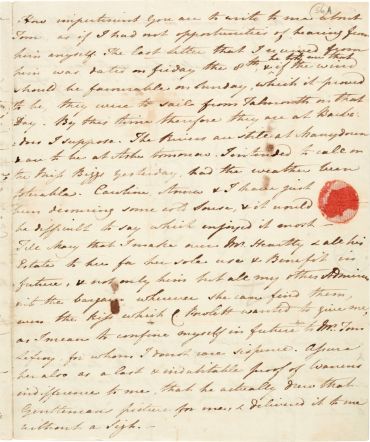 36A
How impertinent you are to write to me about
Tom as if I had not opportunities of hearing from
him myself. The last letter that I received from
him was dated on friday the 8th, & he told me that
if the wind
should be favourable on Sunday, which it proved
to be, they were to sail from Falmouth on that
Day. By this time therefore they are at Barba:
:does I suppose. The Rivers are still at Manydown
& are to be at Ashe tomorrow. I intended to call on
the Miss Biggs yesterday had the weather been
tolerable. Caroline, Anna & I have just
been devouring some cold Souse, & it would
be difficult to say which enjoyed it most –
Tell Mary that I make over Mr. Heartley & all his
Estate to her for her sole use & Benefit in
future, & not only him, but all my other Admirers
into the bargain wherever she can find them,
even the kiss which C Powlett wanted to give me,
as I mean to confine myself in future to Mr. Tom
Lefroy, for whom I donot care sixpence. Assure
her also as a last & indubitable proof of Warren's
indifference to me, that he actually drew that
Gentleman's picture for me, & delivered it to me
without a Sigh. –